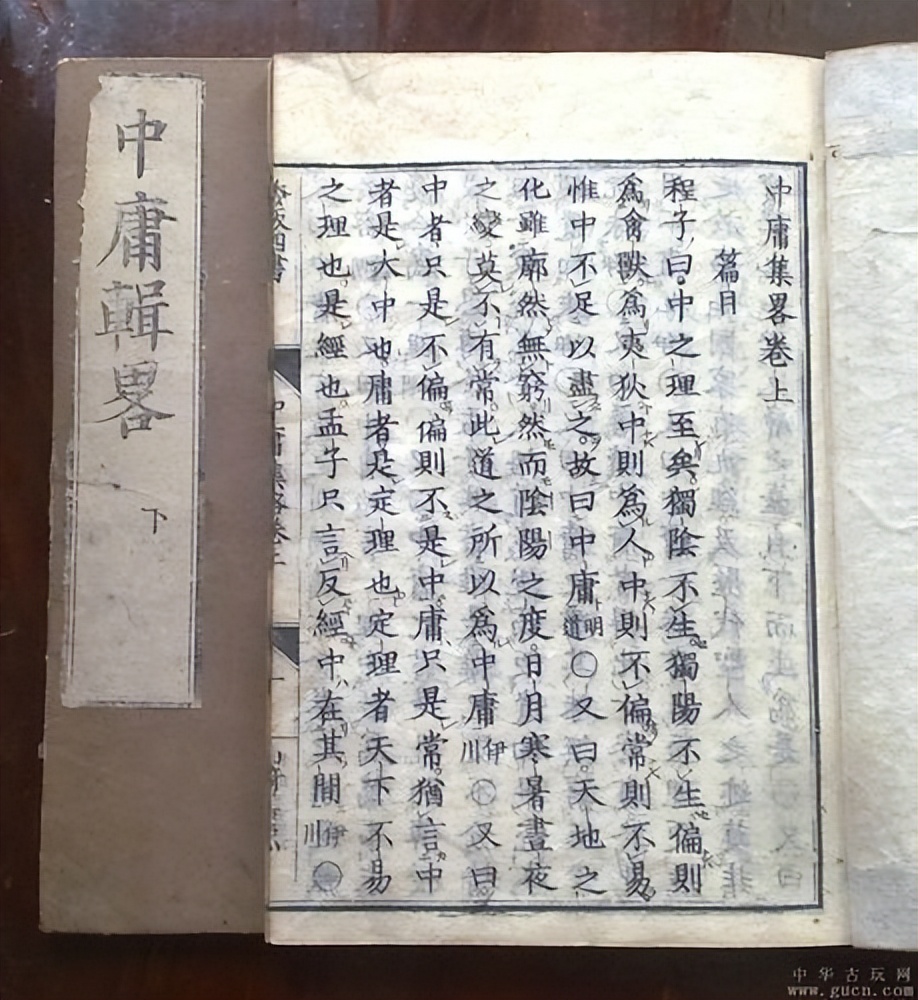 中庸輯畧
下
中庸集畧卷上
篇目
程子曰。中之理至矣。獨陰不生。獨陽不生。偏則
爲禽獸。爲夷狄。中則爲人。中則不偏。常則不易。
惟中不足以盡之。故曰中庸明道〇又曰。天地之
化雖廓然無窮。然而陰陽之度。日月寒暑晝夜
之變。莫不有常。此道之所以爲中庸伊川〇又曰
中者只是不偏。偏則不是中。庸只是常。猶言中
者是大中也。庸者是定理也。定理者天下不易
之理也。是經也。孟子只言反經。中在其間伊川〇
中华古玩网
www.gucn.com